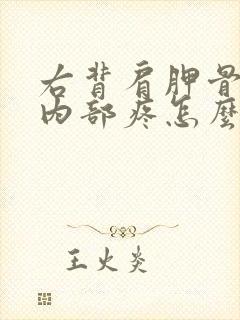 右背肩胛骨
内部疼怎麼
王火炎